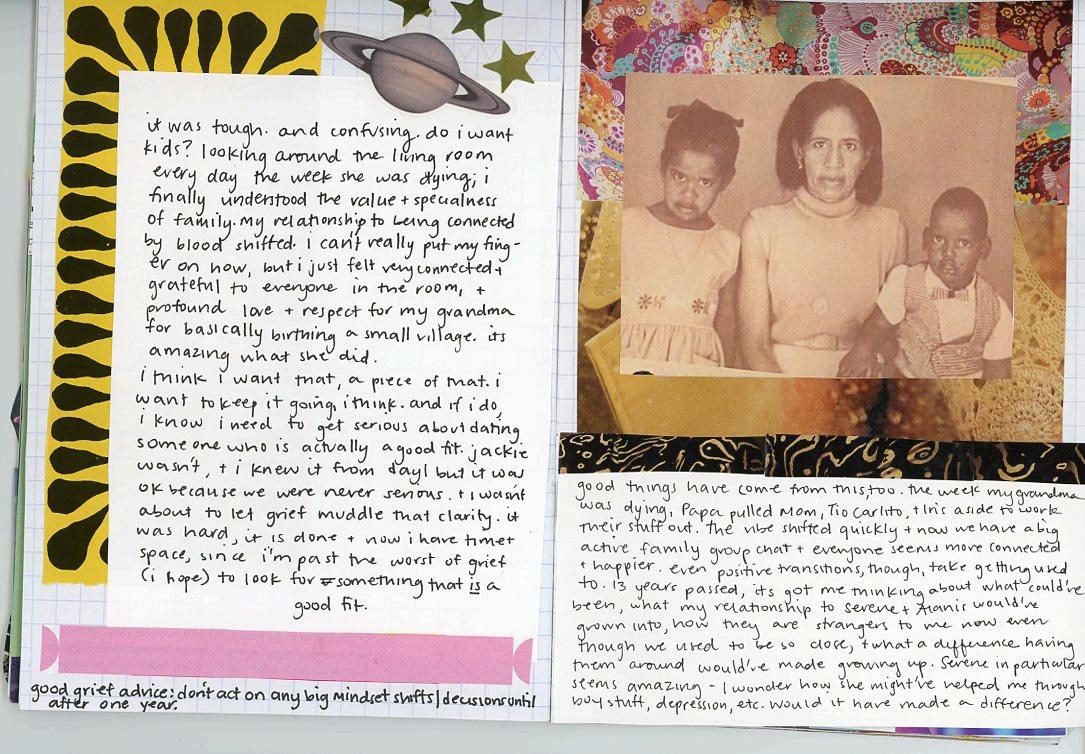 it was tough. and confusing. do i want
kids? looking around the living room
every day the week she was dying, i
finally understood the value + specialness
of family. my relationship to being connected
by blood shifted. i can't really put my fing-
er on how, but i just felt very connected +
grateful to everyone in the room, +
profound love + respect for my grandma
for basically birthing a small village. its
amazing what she did.
i think i want that, a piece of that. i
want to keep it going, i think. and if i do,
i know i need to get serious about dating
someone who is actually a good fit. jackie
wasn't, + i knew it from day 1 but it was
ok because we were never serious. + i wasn't
about to let grief muddle that clarity. it
was hard, it is done + now i have time +
space, since i'm past the worst of grief
(i hope) to look for something that is a
good fit.
good grief advice: don't act on any big mindset shifts/decisions until
after one year.
good things have come from this, too. the week my grandma
was dying, Papa pulled Mom, Tio Carlito, + Iris aside to work
their stuff out. The vibe shifted quickly + now we have a big
active family group chat + everyone seems more connected
+ happier. even positive transitions, though, take getting used
to. 13 years passed, its got me thinking about what could've
been, what my relationship to Serene + Alanis would've
grown into, how they are strangers to me now even
though we used to be so close, + what a difference having
them around would've made growing up. Serene in particular
seems amazing - I wonder how she might've helped me through
boy stuff, depression, etc. would it have made a difference?